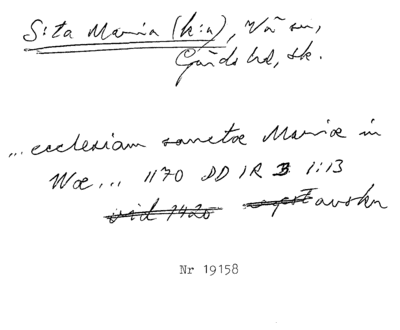 S:ta Maria (k:a), Vä sn,
Gärds hd, Sk.
...ecclesiam sanctæ Mariæ in
Wæ... 1170 DD 1R 3 1:13
vid 1420 avskr
Nr 19158